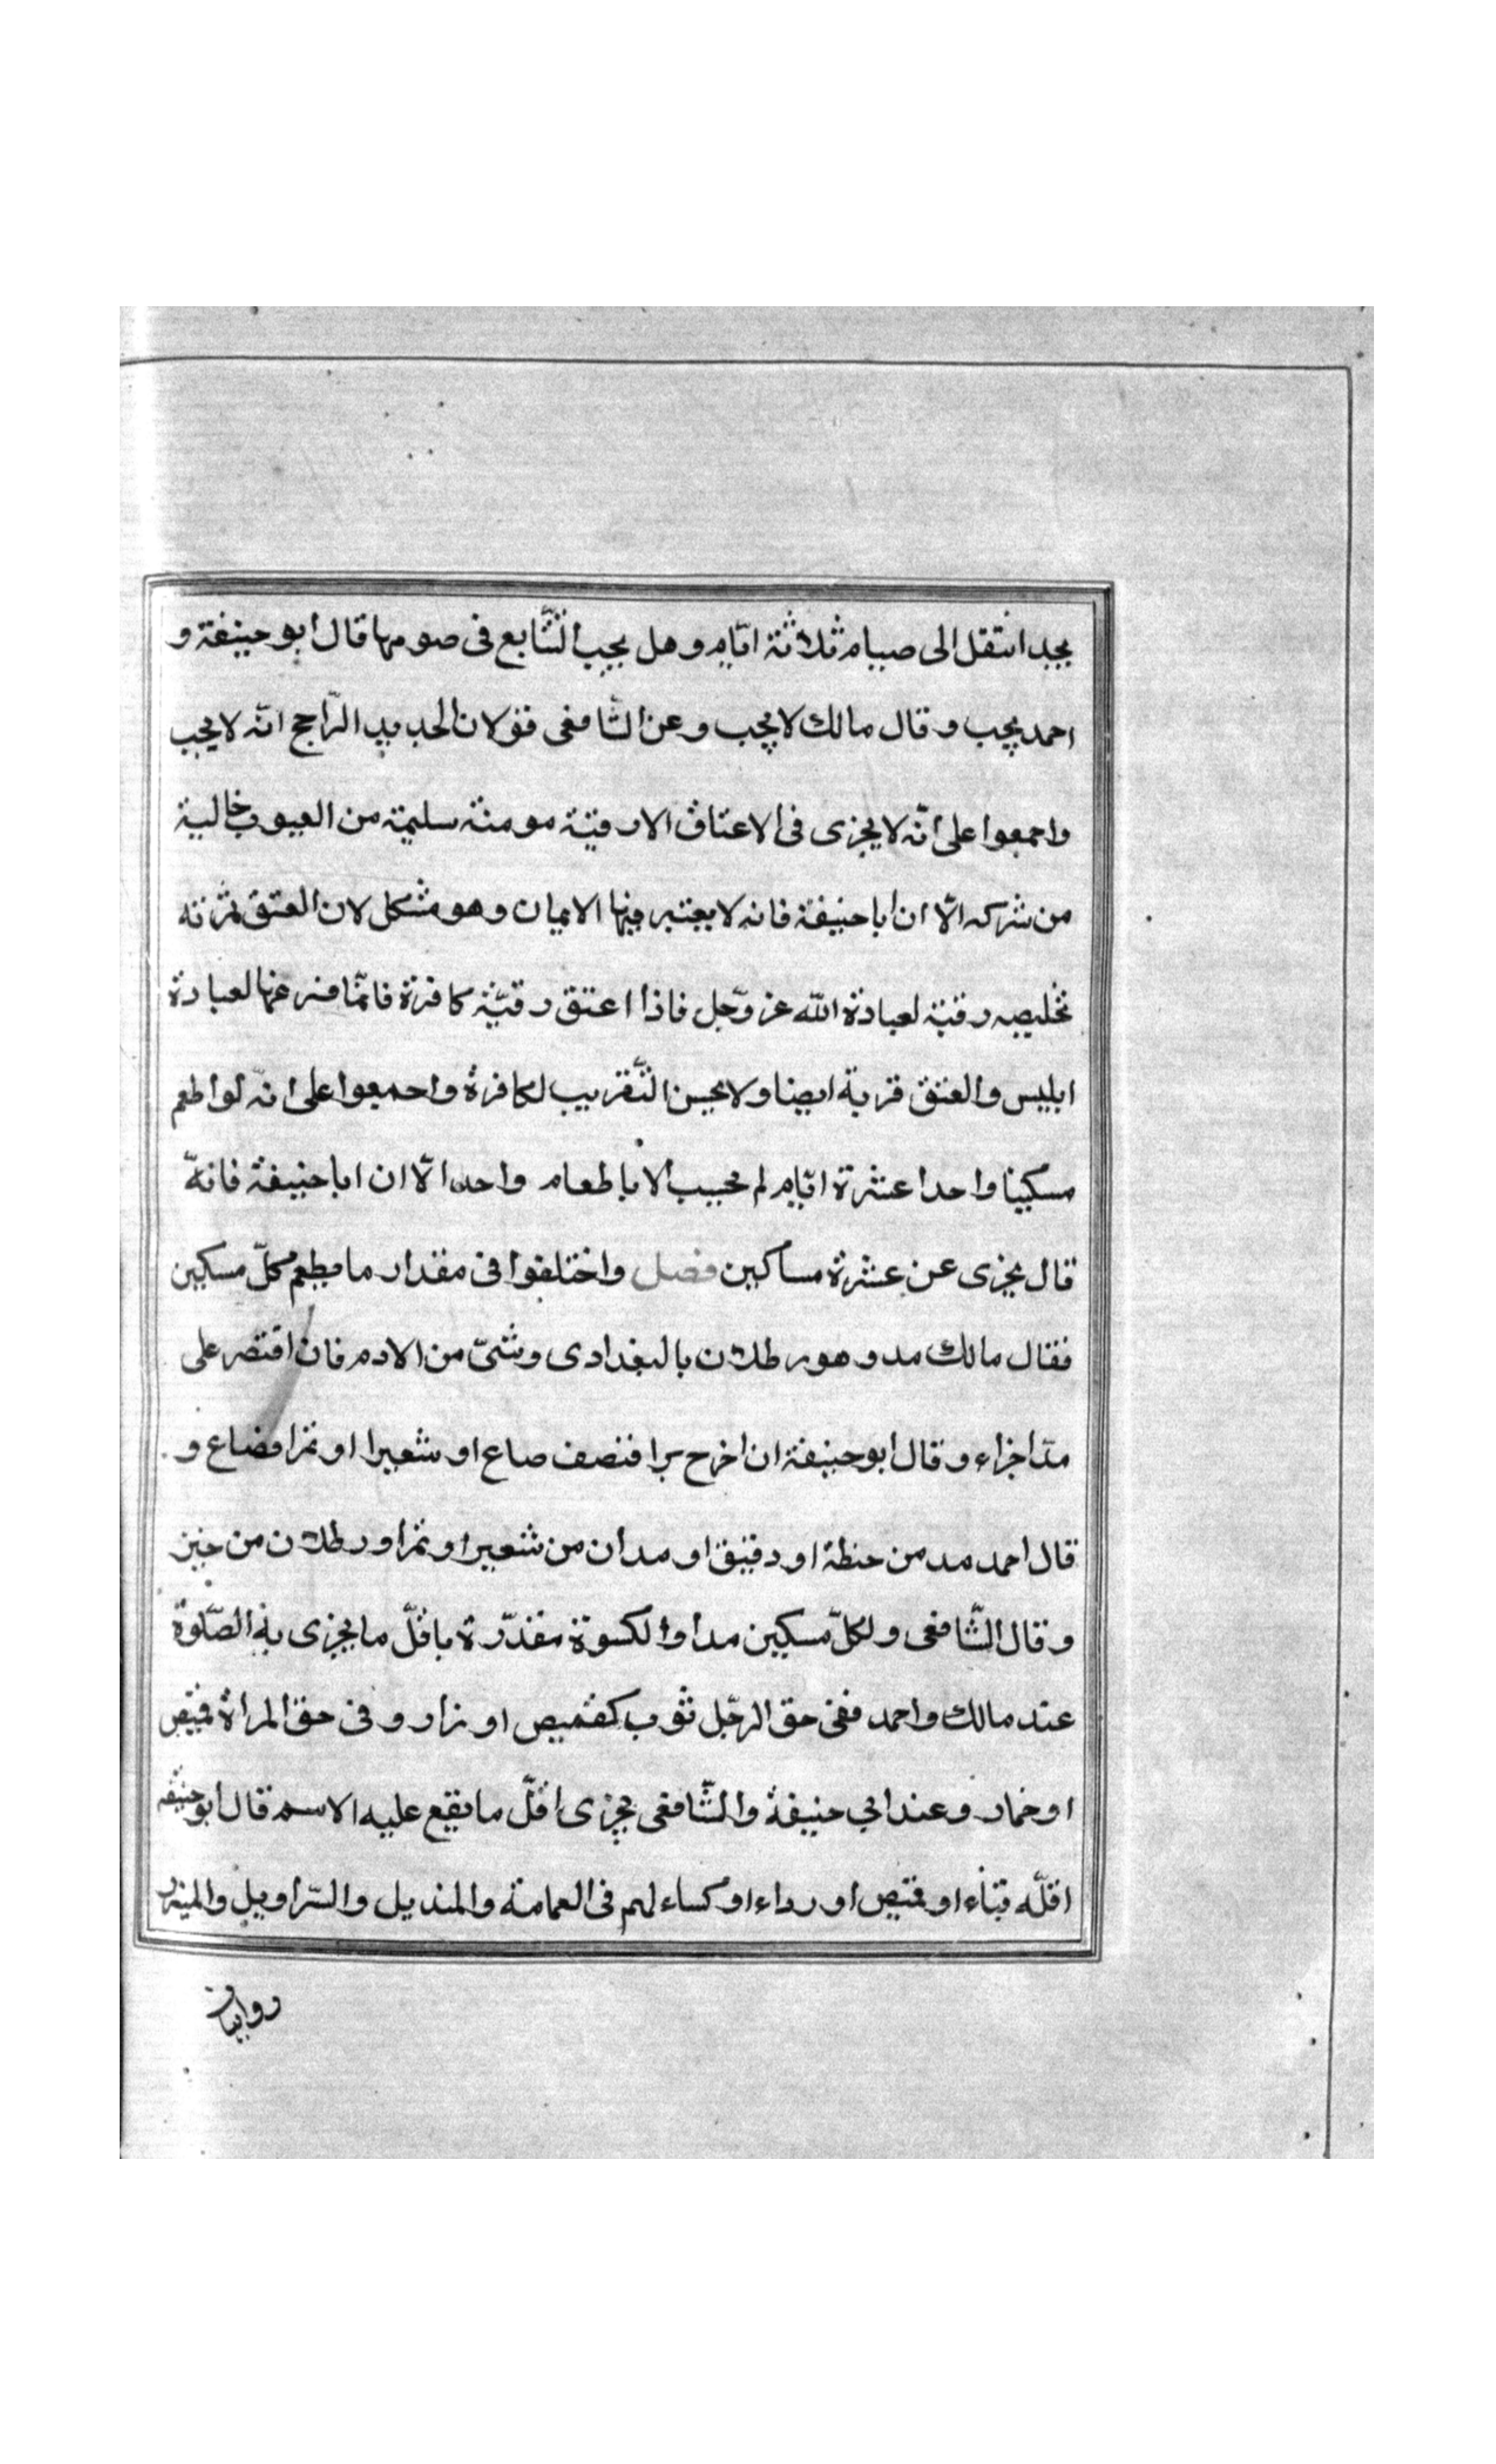 يجد انتقل الى صيام ثلاثة ايّام وهل يجب التّتابع فى صومها قال ابو حنيفة و
احمد يجب وقال مالك لا يجب وعن الشّافعى قولان الجديد الرّاجح انّه لا يجب
واجمعوا على انّه لا يجزى فى الاعتاق الا رقبة مومنة سليمة من العيوب خالية
من شركه الّا ان ابا حنيفة فانه لا يعتبر فيها الايمان وهو مشكل لان العتق ثمرته
تخليص رقبة لعبادة الله عز وجّل فاذا اعتق رقبّة كافرة فانمّا فرغها لعبادة
ابليس والعتق قربة ايضا ولا يحسن التّقريب لكافرة واجمعوا على انّه لو اطعم
مسكينا واحدا عشرة ايّام لم يحسب الا باطعام واحد الّا ان ابا حنيفة فانهّ
قال يجزى عن عشرة مساكين فصل واختلفوا فى مقدار ما يطعم كلّ مسكين
فقال مالك مد وهو رطلان بالبغدادى وشىّ من الادم فان اقتصر على
مدّ اجزاء وقال ابو حنيفة ان اخرج برا فنصف صاع او شعيرا او تمرا فصاع و
قال احمد مد من حنطة او دقيق او مدان من شعير او تمر او رطلان من خبز
وقال الشّافعى ولكلّ مسكين مد او الكسوة مقدّرة باقلّ ما يجزى به الصّلوة
عند مالك واحمد ففى حق الرجّل ثوب كقميص او زار وفى حق المراة قميص
او خمار وعند ابي حنيفة والشّافعى يجزى اقلّ ما يقع عليه الاسم قال ابو حنيفة
اقلّه قباء او قميص او رداء او كساء لهم فى العمامة والمنديل والسّراويل والميزر
روايتان